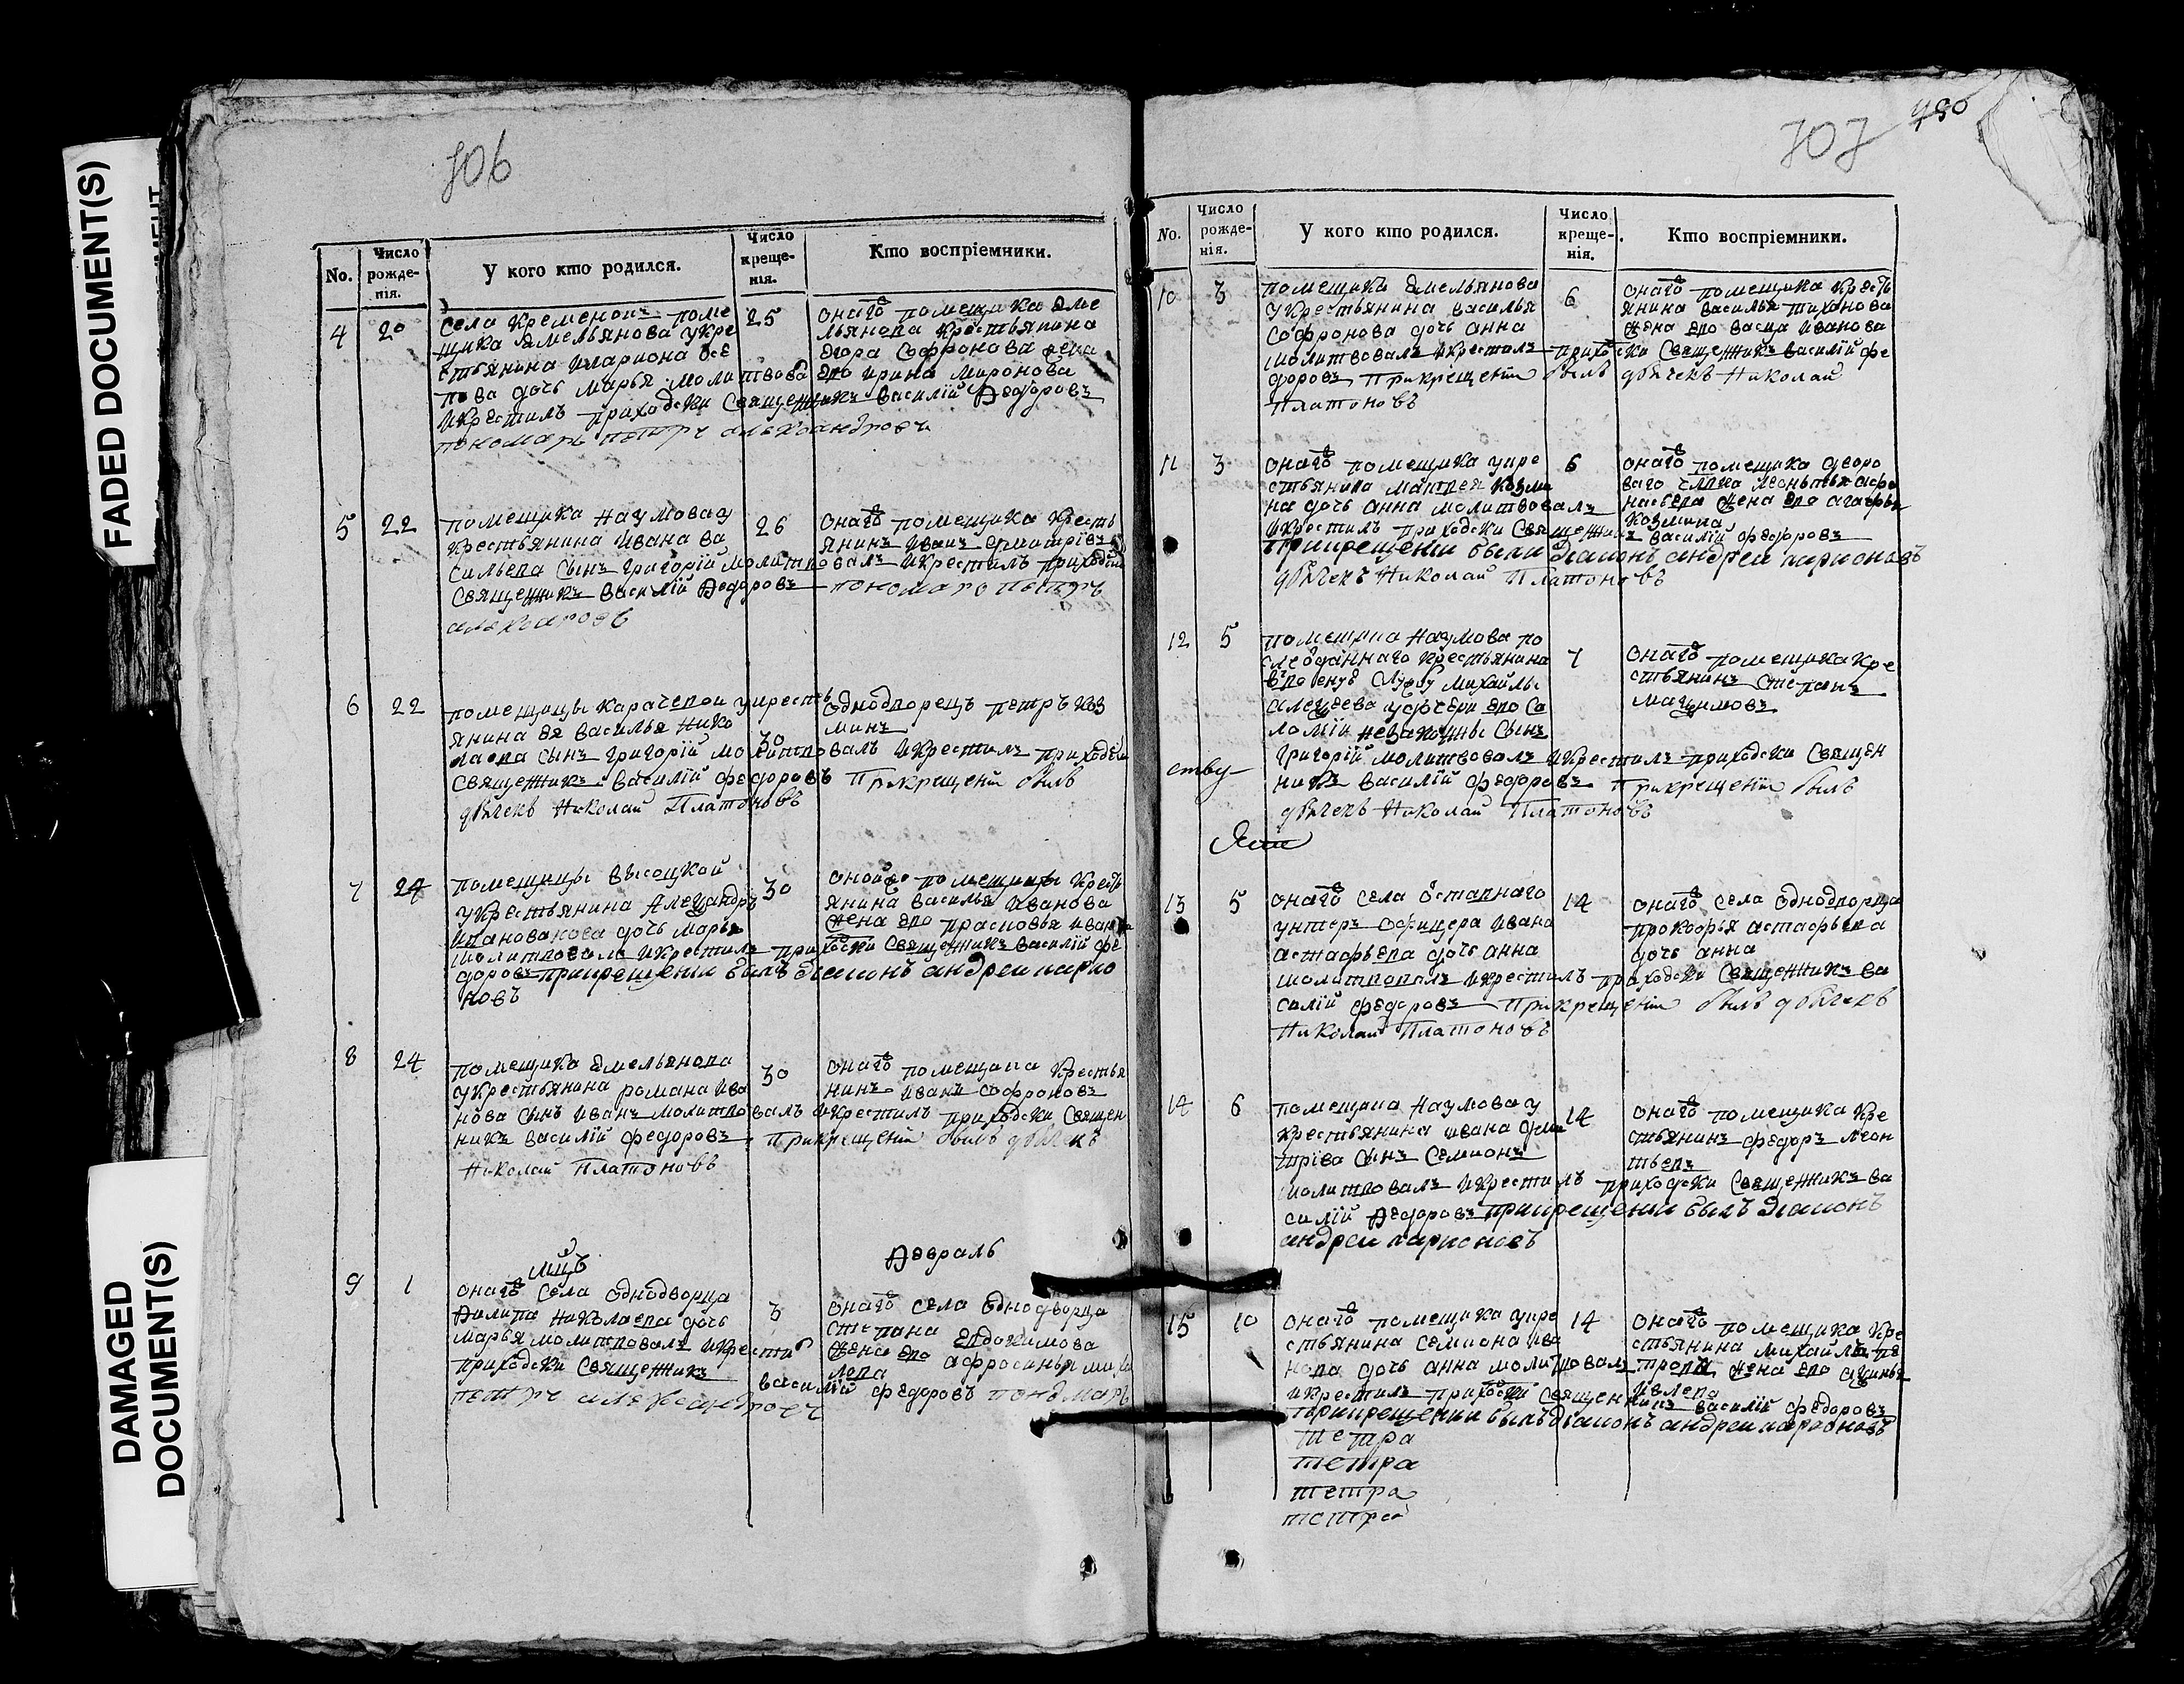 FADED DOCUMENT(S)
DAMAGED
DOCUMENT(S)
706
No.
Число рожде-нія.
У кого кто родился.
Число креще-нія.
Кто воспріемники.
4 20 25
села Кременои поме
щика Емельянова укре
стьянина илариона
пова дочь марья молитвова
икрестилъ приходски Священникъ Василій Ѳедоровъ
пономарь петръ александровъ
онаго помещика Еме
льянова крестьянина
Егора Софронова жена
его ирина миронова
5 22 26
помещика Наумова у
крестьянина ивана ва
сильева сынъ григорій молитвовалъ икрестилъ приходски
Священникъ Василій Ѳедоровъ пономарь петръ
онаго помещика кресть
янинъ иванъ дмитріевъ
6 22 30
помещицы Карачевои укресть
янина василья нико
лаева сынъ григорій молитвовалъ икрестилъ приходски
священникъ василій федоровъ Прикрещеніи былъ
дьячекъ Николай Платоновъ
однодворецъ петръ коз
минъ
7 24 30
помещицы высоцкой
укрестьянина Алеѯандра
дочь марья
молитвовалъ икрестилъ приходски священникъ василій фе
доровъ прикрещении былъ диаконъ андреи ларио
новъ
онойже помещицы кресть
янина василья иванова
жена его прасковья ивано
8 24 30
помещика Емельянова
укрестьянина романа ива
нова сынъ иванъ молитвовалъ икрестилъ приходски священ
никъ василій федоровъ прикрещеніи былъ дьячекъ
Николай Платоновъ
онаго помещика крестья
нинъ иванъ софроновъ
мцъ Ѳевраль
9 1 3
онаго села однодворца
Ѳилипа николаева дочь
марья молитвовалъ икрестилъ
приходски священникъ василій федоровъ пономарь
петръ александровъ
онаго села однодворца
степана евдокимова
жена его афросинья
707
450
No.
Число рожде-нія.
У кого кто родился.
Число креще-нія.
Кто воспріемники.
10 3 6
помещика Емельянова
укрестьянина василья
софронова дочь анна
молитвовалъ икрестилъ приходски священникъ василій фе
доровъ Прикрещеніи былъ дьячекъ Николай
Платоновъ
онаго помещика кресть
янина василья тиханова
жена его васса иванова
11 3 6
онаго помещика укре
стьянина матвея козми
на дочь анна молитвовалъ
икрестилъ приходски священникъ василій федоровъ
прикрещении были диаконъ андреи ларионовъ
дьячекъ Николай Платоновъ
онаго помещика дворо
ваго члвка леонтья афо
насьева жена его агафья
козмина
12 5 7
помещика Наумова по
слеотданнаго крестьянина
ввоенную службу михайлы
алеѯеева удочери его со
ломіи незаконны сынъ
григорій молитвовалъ икрестилъ приходски священ
никъ василій федоровъ Прикрещеніи былъ
дьячекъ Николай Платоновъ
онаго помещика кре
стьянинъ степанъ
маѯимовъ
ству
13 5 14
онаго села отставнаго
унтеръ офицера ивана
астафьева дочь анна
молитвовалъ икрестилъ приходски священникъ ва
силій федоровъ Прикрещеніи былъ дьячекъ
Николай Платоновъ
онаго села однодворца
прокофья астафьева
дочь анна
14 6 14
помещика Наумова у
крестьянина ивана дми
тріва сынъ семионъ
молитвовалъ икрестилъ приходски священникъ ва
силій Ѳедоровъ прикрещении былъ диаконъ
андреи ларионовъ
онаго помещика кре
стьянинъ федоръ леон
тьевъ
15 10 14
онаго помещика укре
стьянина семиона ива
нова дочь анна молитвовалъ
икрестилъ приходски священникъ василій федоровъ
прикрещении былъ диаконъ андреи ларионовъ
онаго помещика кре
стьянина михайлы пе
трова жена его аѯинья
тетра
тетра
тетра
тетра